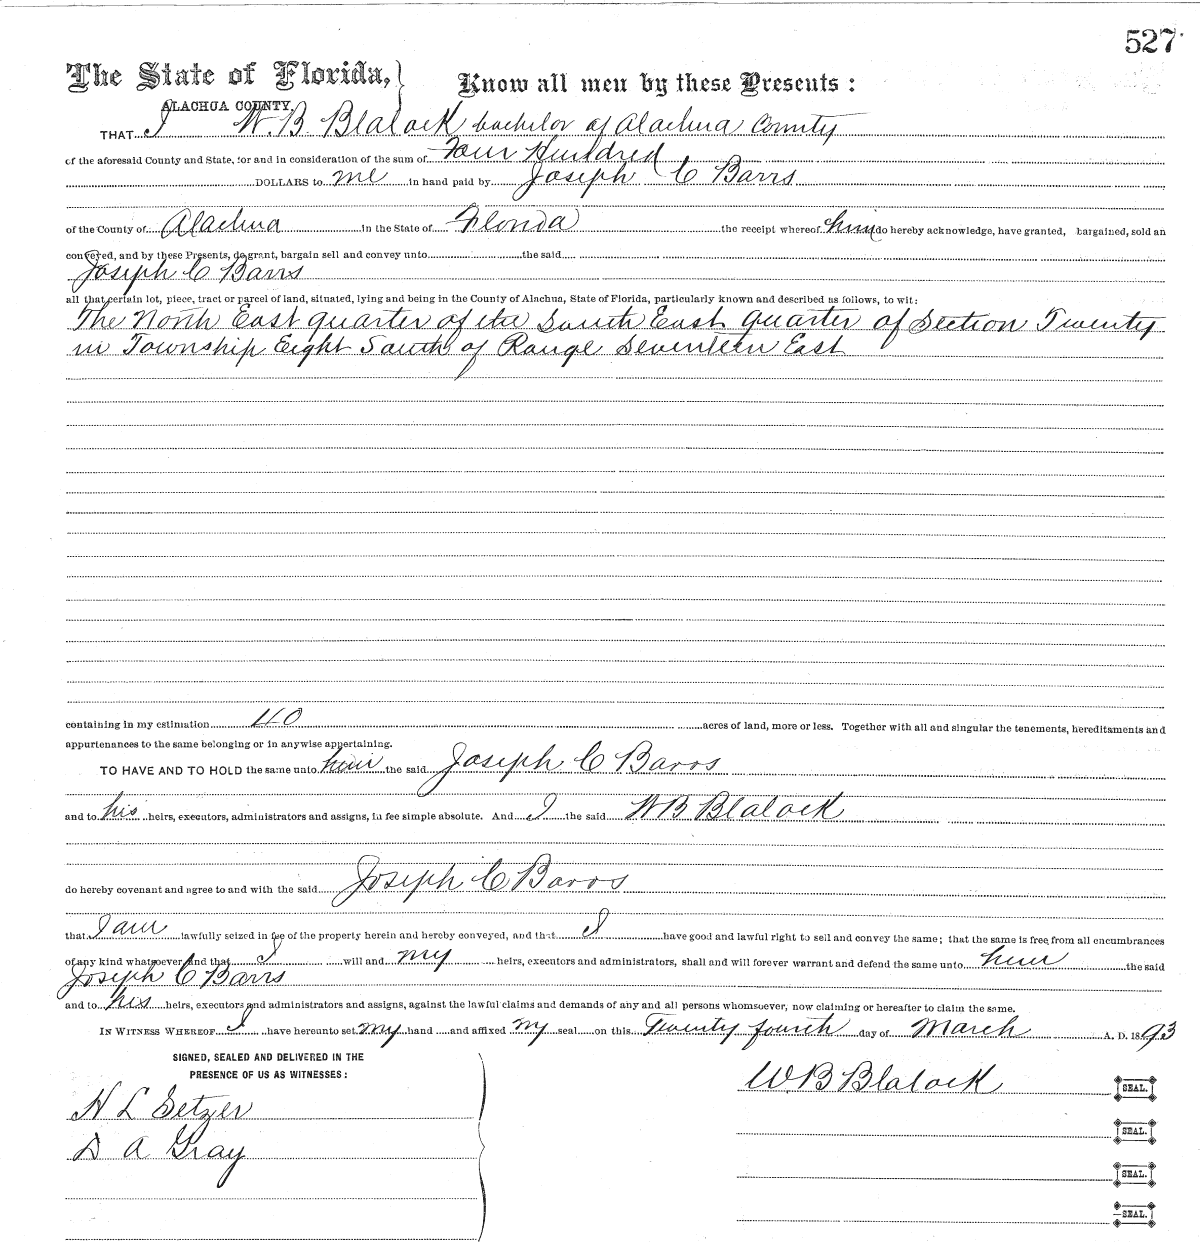 527
The State of Florida, } Know all men by these Presents :
ALACHUA COUNTY.
THAT I W. B Blalock bachelor of Alachua County
of the aforesaid County and State, for and in consideration of the sum of Four Hundred
DOLLARS to me in hand paid by Joseph C Barrs
of the County of Alachua in the State of Florida the receipt whereof him do hereby acknowledge, have granted, bargained, sold an
conveyed, and by these Presents, do grant, bargain sell and convey unto the said
Joseph C Barrs
all that certain lot, piece, tract or parcel of land, situated, lying and being in the County of Alachua, State of Florida, particularly known and described as follows, to wit:
The North East quarter of the South East quarter of Section Twenty
in Township Eight South of Range Seventeen East
containing in my estimation 40 acres of land, more or less. Together with all and singular the tenements, hereditaments and
appurtenances to the same belonging or in anywise appertaining.
TO HAVE AND TO HOLD the same unto him the said Joseph C Barrs
and to his heirs, executors, administrators and assigns, in fee simple absolute. And I the said W B Blalock
do hereby covenant and agree to and with the said Joseph C Barrs
that I am lawfully seized in fee of the property herein and hereby conveyed, and that I have good and lawful right to sell and convey the same; that the same is free from all encumbrances
of any kind whatsoever and that I will and my heirs, executors and administrators, shall and will forever warrant and defend the same unto him the said
Joseph C Barrs
and to his heirs, executors and administrators and assigns, against the lawful claims and demands of any and all persons whomsoever, now claiming or hereafter to claim the same.
IN WITNESS WHEREOF I have hereunto set my hand and affixed my seal on this Twenty fourth day of March A. D. 1893
SIGNED, SEALED AND DELIVERED IN THE
PRESENCE OF US AS WITNESSES:
W B Blalock SEAL.
H L Setzer
SEAL.
D A Gray
SEAL.
SEAL.